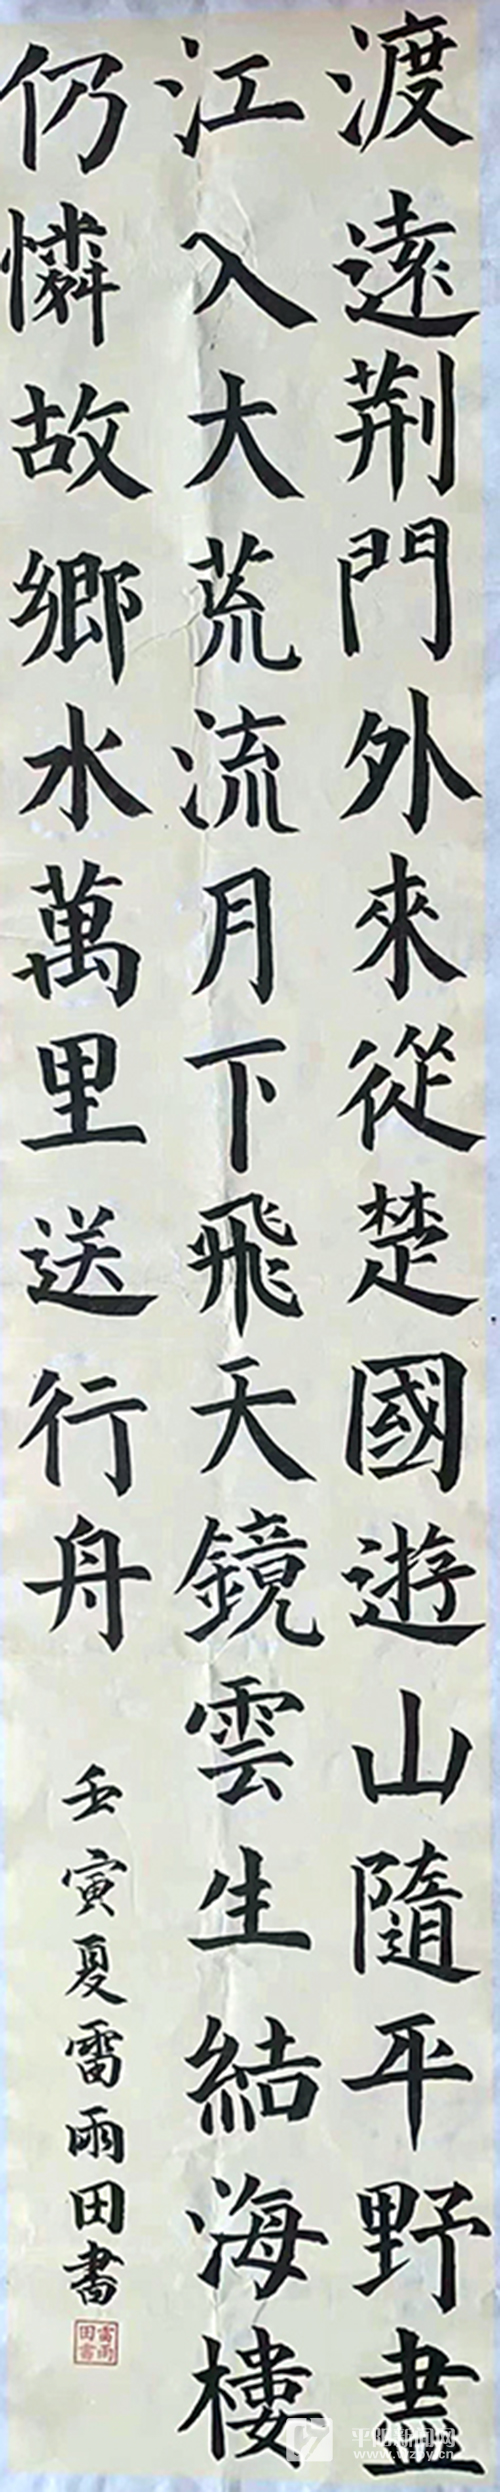 渡遠荊門外來從楚國遊山隨平野盡
江入大荒流月下飛天鏡雲生結海樓
仍憐故鄉水萬里送行舟
壬寅夏雷雨田書
雷雨田書
平阳新闻网
www.wzpy.cn